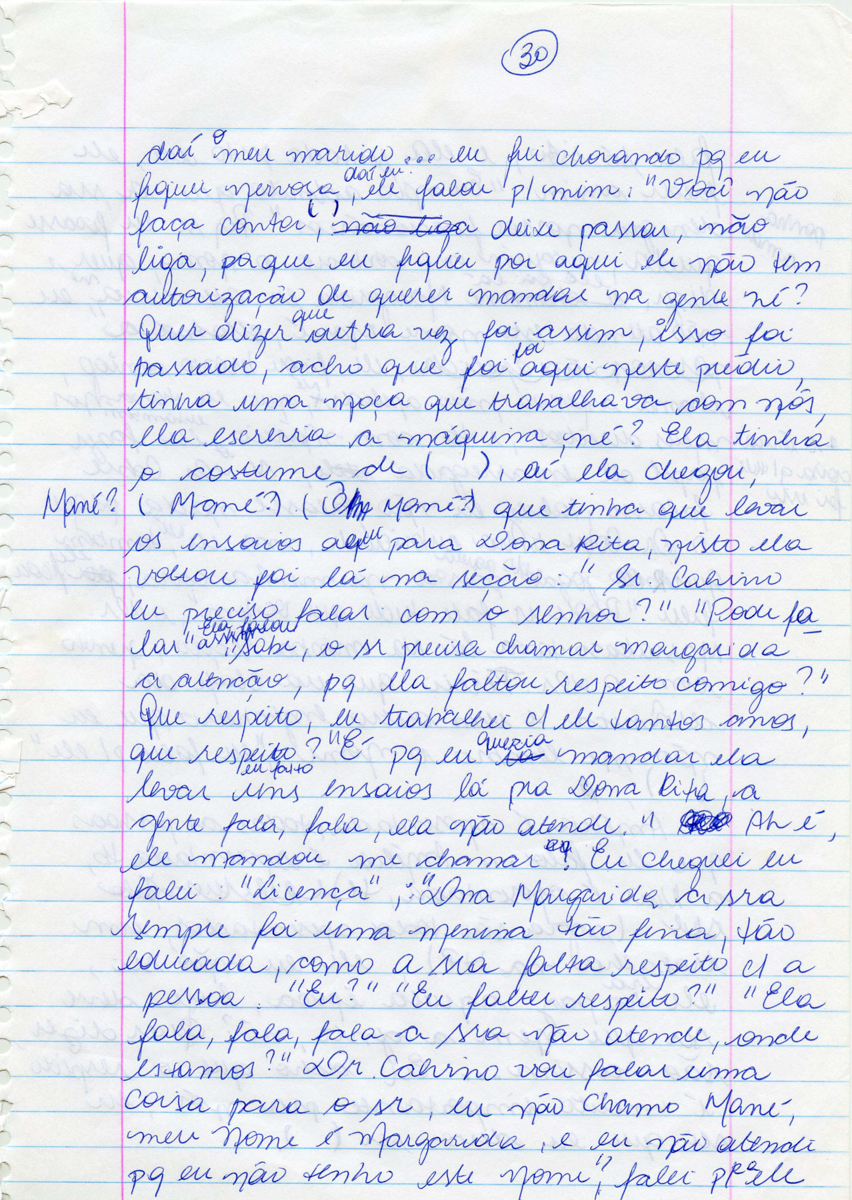 30
daí o meu marido... eu fui chorando pq eu
fiquei nervosa, daí eu. ele falou p/ mim: "Você não
faça conta ( ), não liga deixe passar, não
liga, pq que eu fiquei por aqui ele não tem
autorização de querer mandar na gente né?
Quer dizer que outra vez foi assim, isso foi
passado, acho que foi foi aqui neste prédio,
tinha uma moça que trabalhava com nós,
ela escrevia a máquina, né? Ela tinha
o costume de ( ), aí ela chegou,
Mané? (Mané?) ( Mané?) que tinha que levar
os ensaios aqui para Dona Rita, nisto ela
voltou foi lá na seção: "Sr. Calvino
eu preciso falar com o senhor?" "Pode fa
lar" Ela falou "sabe, o sr precisa chamar margarida
a atenção, pq ela faltou respeito comigo?"
Que respeito, eu trabalhei c/ ele tantos anos,
que respeito? "É pq eu queria mandar ela
levar eu falto uns ensaios lá pra Dona Rita, a
gente fala, fala, ela não atende." Ah é,
ele mandou me chamar? Eu cheguei eu
falei: "Licença", : "Dna Margarida a sra
sempre foi uma menina tão fina, tão
educada, como a sra falta respeito c/ a
pessoa. "Eu?" "Eu faltei respeito?" "Ela
fala, fala, fala a sra não atende, onde
estamos?" Dr. Calvino vou falar uma
coisa para o sr, eu não chamo Mané,
meu nome é Margarida, e eu não atendi
pq eu não tenho este nome", falei pra ele